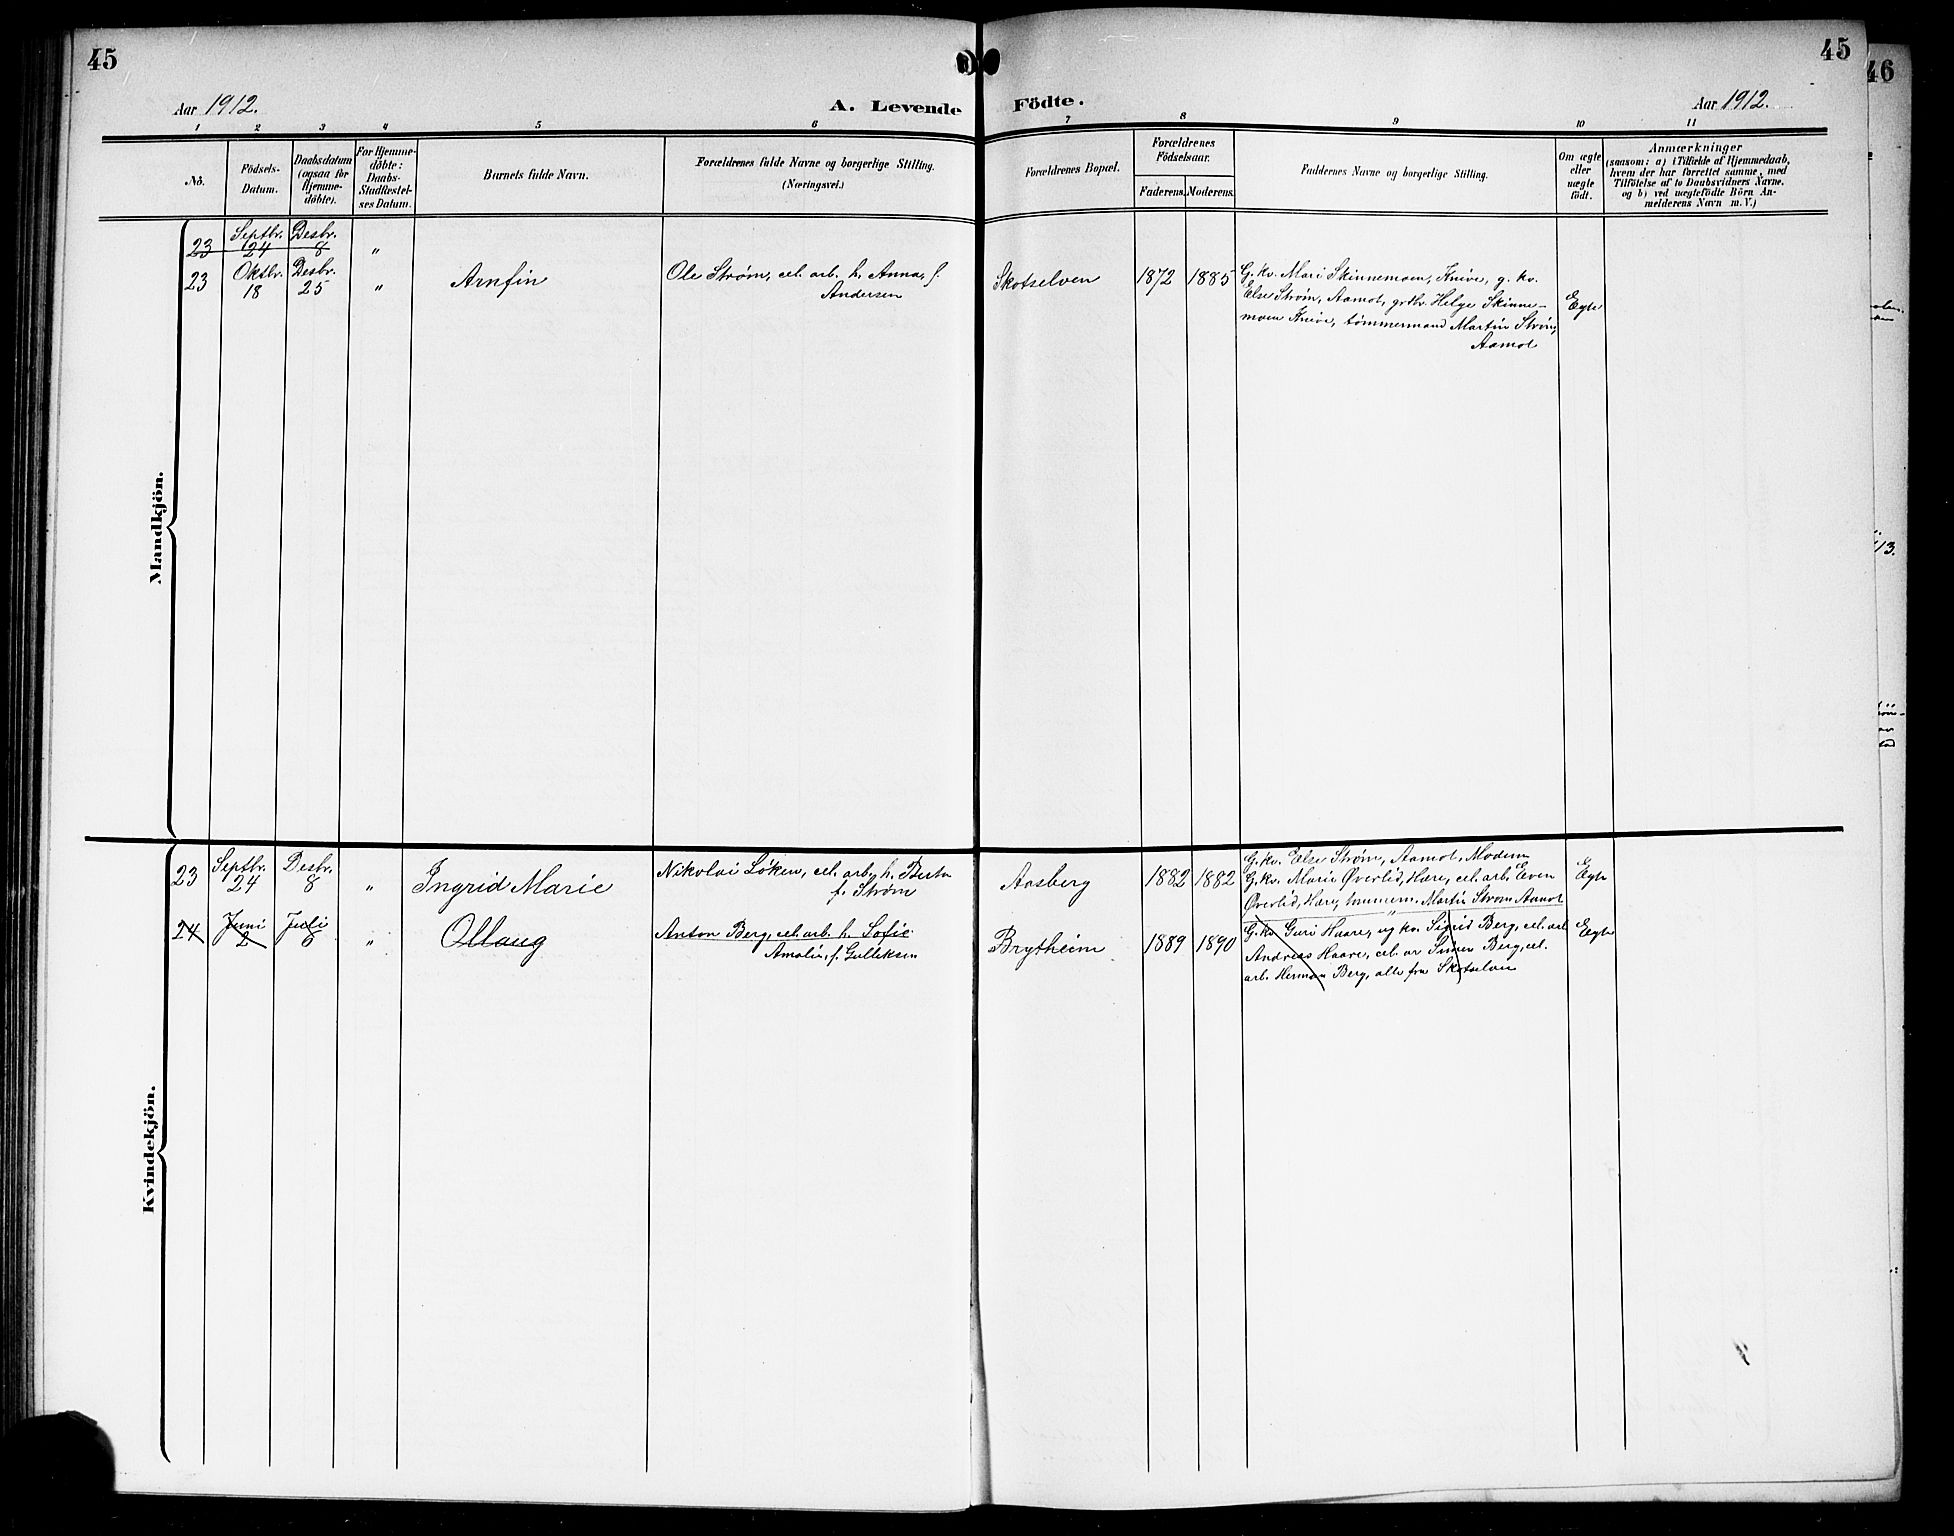 45
45
46
Aar 1912.
A. Levende
Födte.
Aar 1912.
1 2 3 4 5 6 7 8 9 10 11
No.
Födsels-
Datum.
Daabsdatum
(ogsaa for
Hjemme-
döbte).
For Hjemme-
döbte:
Daabs-
Stadfæstel-
ses Datum.
Barnets fulde Navn.
Forældrenes fulde Navne og borgerlige Stilling.
(Næringsvei.)
Forældrenes Bopæl.
Forældrenes
Födselsaar.
Faderens. Moderens.
Faddernes Navne og borgerlige Stilling.
Om ægte
eller
uægte
født.
Anmærkninger
(saasom: a) i Tilfælde af Hjemmedaab,
hvem der har forrettet samme, med
Tilföielse af to Daabsvidners Navne.
og b) ved uægtefödte Börn An-
melderens Navn m. V.)
Mandkjön.
23 Septbr. 24 Desbr. 8 "
23 Oktbr. 18 Desbr. 25 "
Arnfin
Ole Strøm, cel. arb. h. Anna, f.
Andersen
Skotselven
1872 1885
G. kv. Mari Skinnemoen, Knive, g. kv.
Else Strøm, Aamot, grdbr. Helge Skinne-
moen Knive, tømmermand Martin Strøm,
Aamot
Egte
Kvindekjön.
23 Septbr. 24 Desbr. 8 "
Ingrid Marie
Nikolai Løken, cel. arb., h. Berta
f. Strøm
Aasberg
1882 1882
G. kv. Else Strøm, Aamot, Modum
G. kv. Marie Øverlid, Hære, cel. arb. Even
Øverlid, Hære, tømmerm. Martin Strøm Aamot
Egte
24 Juni 2 Juli 8 "
Ollaug
Anton Berg, cel. arb. h. Sofie
Amalie, f. Gulliksen
Brytheim
1889 1890
G. kv. Guri Haare, ug. kv. Sigrid Berg, cel. arb
Andreas Haare, cel. ar Simen Berg, cel.
arb. Herman Berg, alle fra Skotselven
Egte